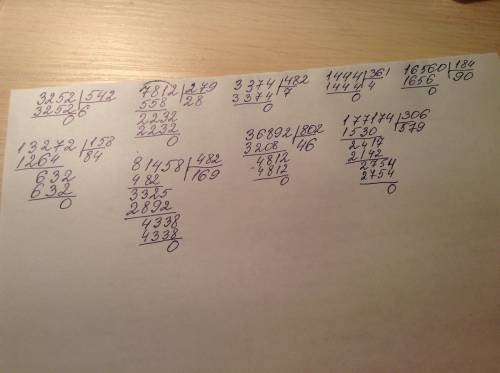 3252 | 542
3252 6
0
7812 | 279
558 28
2232
2232
0
3374 | 482
3374 7
0
1444 | 361
1444 4
0
16560 | 184
1656 90
0
13272 | 158
1264 84
632
632
0
81458 | 482
482 169
3325
2892
4338
4338
0
36892 | 802
3208 46
4812
4812
0
177174 | 306
1530 579
2417
2142
2754
2754
0